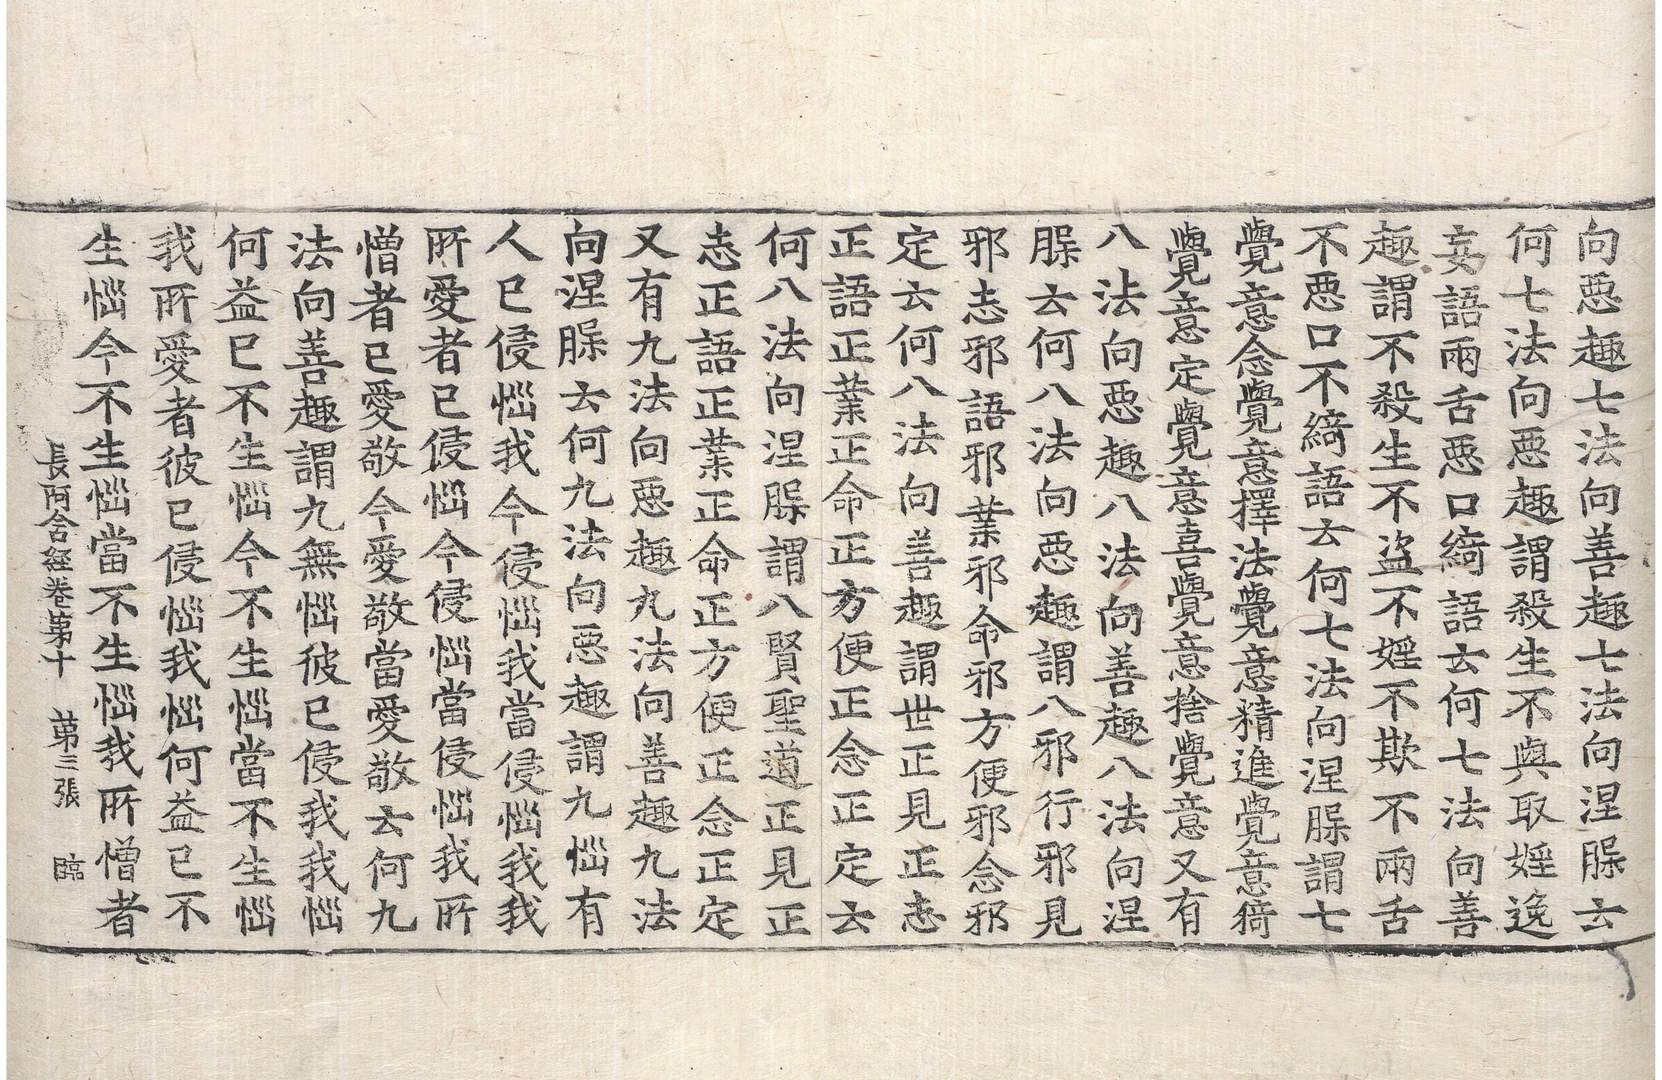 向惡趣七法向善趣七法向涅槃云
何七法向惡趣謂殺生不與取婬逸
妄語兩舌惡口綺語云何七法向善
趣謂不殺生不盜不婬不欺不兩舌
不惡口不綺語云何七法向涅槃謂七
覺意念覺意擇法覺意精進覺意猗
覺意定覺意喜覺意捨覺意又有
八法向惡趣八法向善趣八法向涅
槃云何八法向惡趣謂八邪行邪見
邪志邪語邪業邪命邪方便邪念邪
定云何八法向善趣謂世正見正志
正語正業正命正方便正念正定云
何八法向涅槃謂八賢聖道正見正
志正語正業正命正方便正念正定
又有九法向惡趣九法向善趣九法
向涅槃云何九法向惡趣謂九惱有
人已侵惱我今侵惱我當侵惱我我
所愛者已侵惱今侵惱當侵惱我所
憎者已愛敬今愛敬當愛敬云何九
法向善趣謂九無惱彼已侵我我惱
何益已不生惱今不生惱當不生惱
我所愛者彼已侵惱我惱何益已不
生惱今不生惱當不生惱我所憎者
長阿含經卷第十 第三張 臨